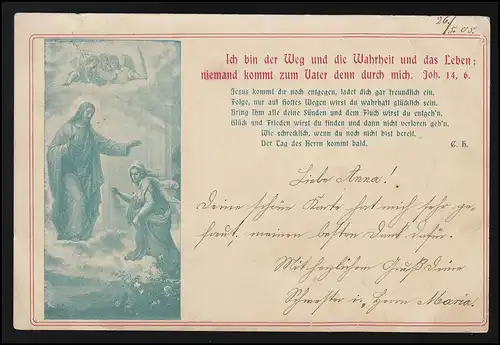 26/5.05.
Ich bin der Weg und die Wahrheit und das Leben;
niemand kommt zum Vater denn durch mich. Joh. 14, 6.
Jesus kommt dir noch entgegen, ladet dich gar freundlich ein,
Folge, nur auf Gottes Wegen wirst du wahrhaft glücklich sein.
Bring ihm alle deine Sünden und dem Fluch wirst du entgeh'n.
Glück und Frieden wirst du finden und dann nicht verloren geh'n.
Wie schrecklich, wenn du noch nicht bist bereit.
Der Tag des Herrn kommt bald.
C. H.
Liebe Anna!
Deine schöne Karte hat mich sehr ge-
freut, meinen besten Dank dafür.
Mit herzlichem Gruß Deine
Schwester in Herrn Maria.